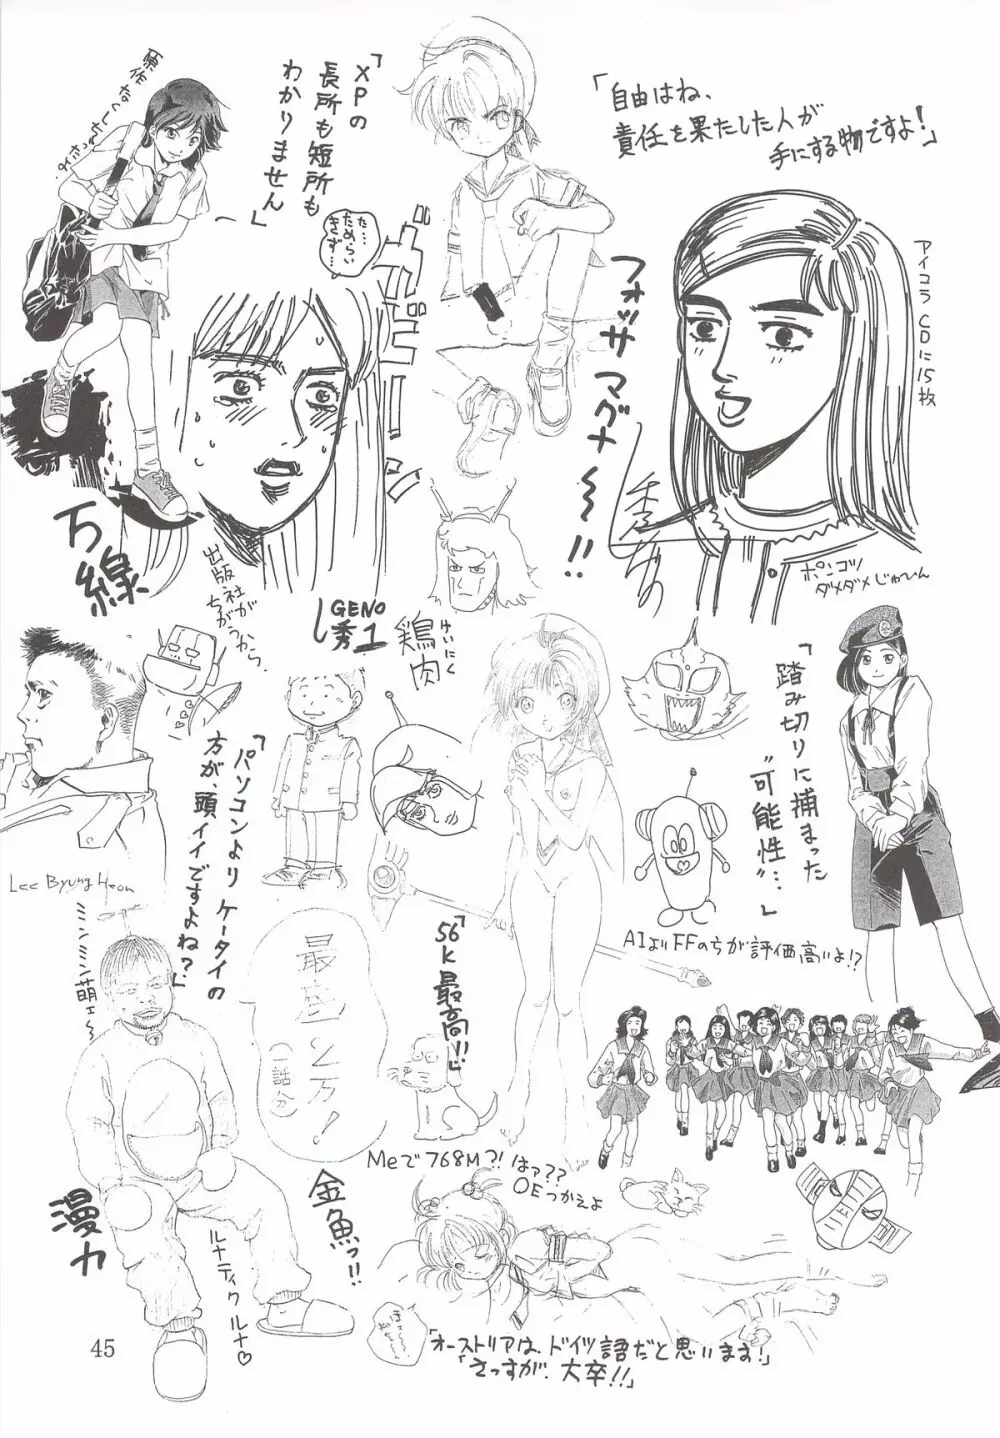 「XPの
長所も短所も
わかりません」
「自由はね、
責任を果たした人が
手にする物ですよ!」
た…
ためらい
きず…
フォッサマグナ〜!!
アイコラCDに15枚
ガビーン
万線
出版社が
ちがうから.
GENO
秀1
けいにく
鶏肉
ポンコツ
ダメダメじゅぴーん
「踏み切りに捕まった
"可能性"…」
「パソコンより ケータイの
方が、頭イイですよね?」
Lee Byung Heon
AIよりFFのちが評価高いよ!?
「56k最高!!」
最底二万!
(一話分)
萌ェ〜
MeでM768M?! はァ??
OEつかえよ
漫力
金魚っ!!
ルナティクルナ♡
「オーストリアは、ドイツ語だと思います!」
「さっすが、大卒!!」
45